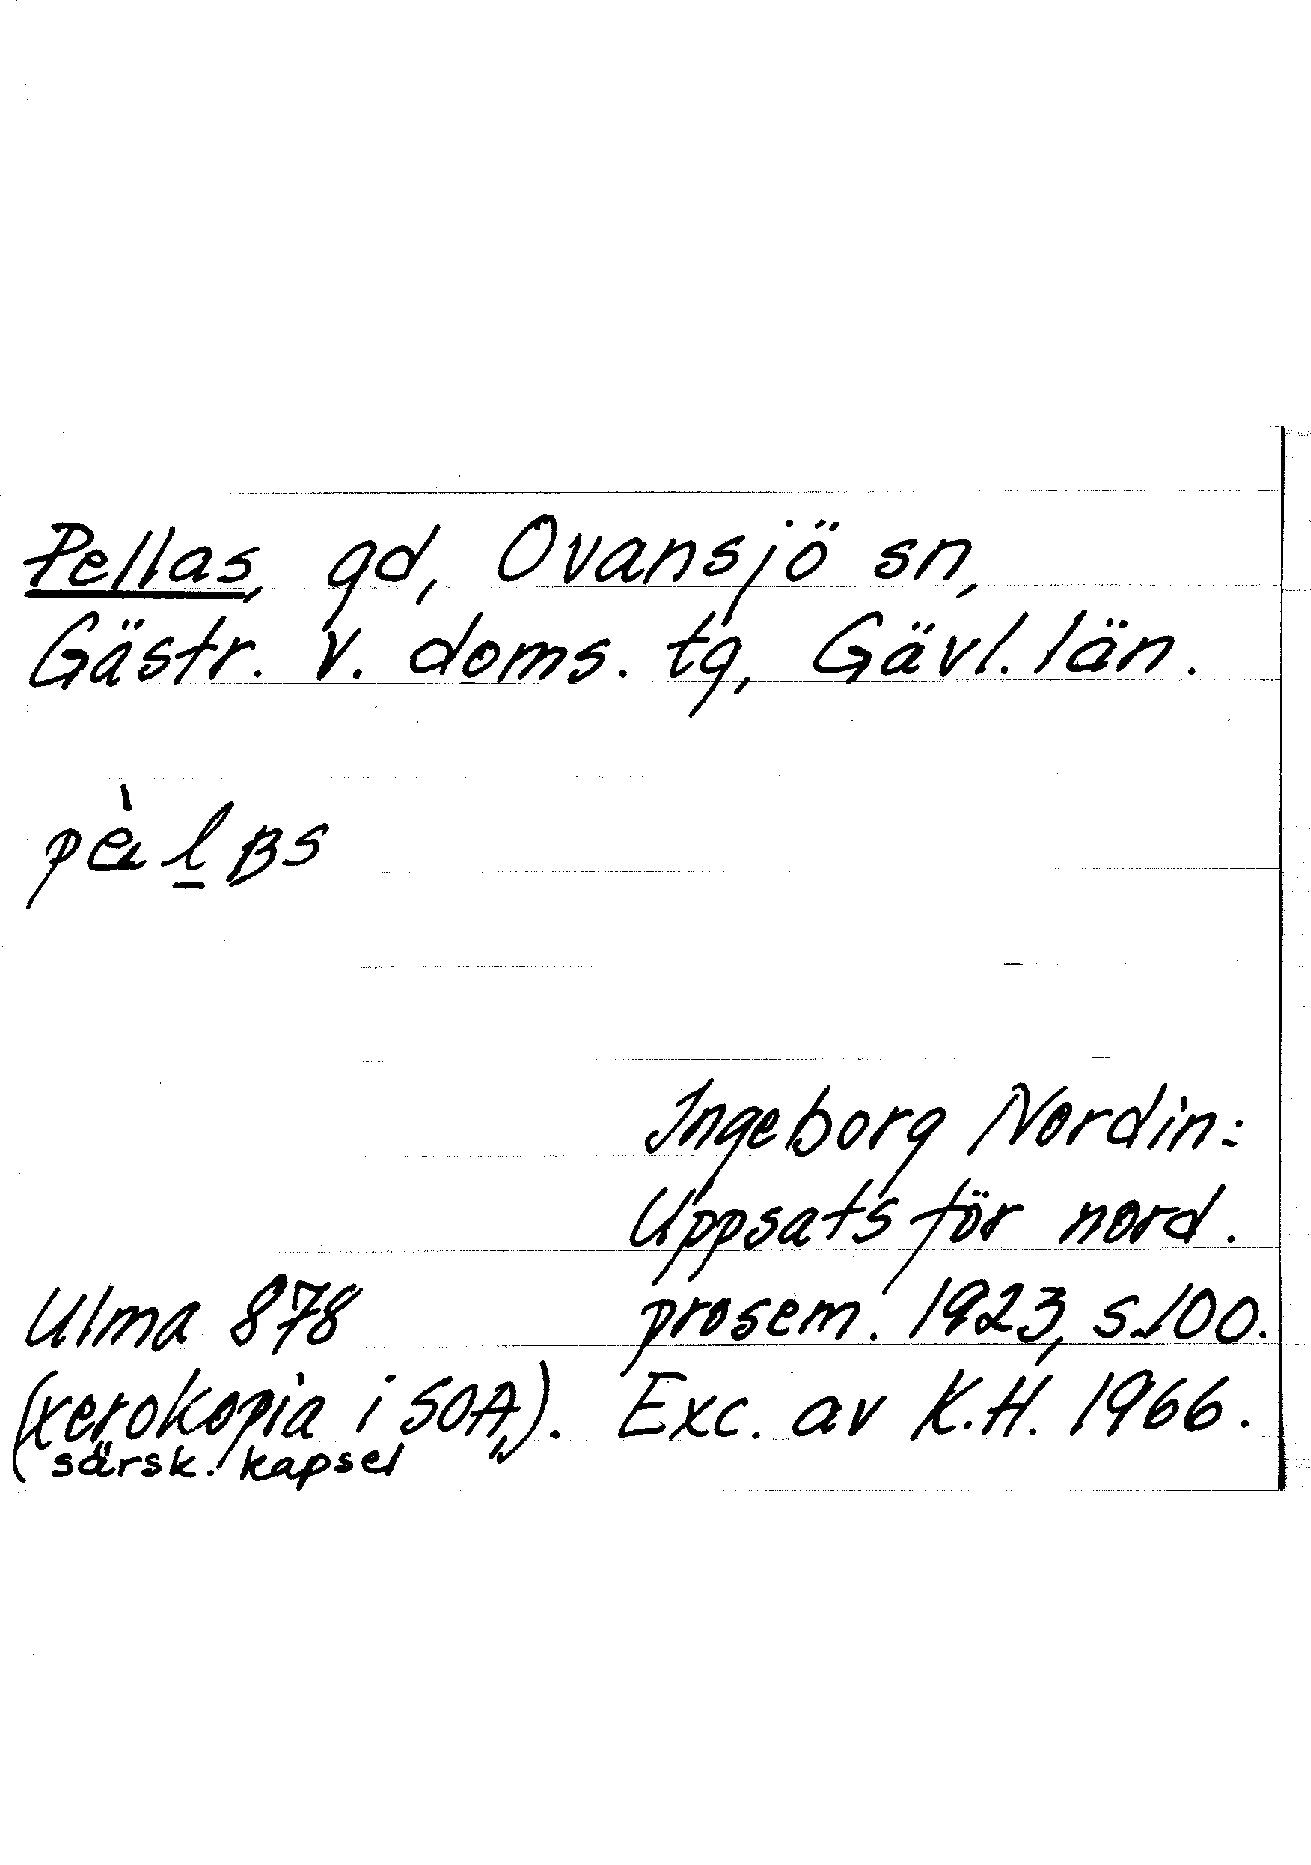 Pellas, gd, Ovansjö sn,
Gästr. v. doms. tg, Gävl. län.
Ingeborg Nordin:
Uppsats för nord.
Ulma 878 prosem. 1923, s. 100.
(xerokopia i SOA,,). Exc. av K.H. 1966.
särsk. kapsel